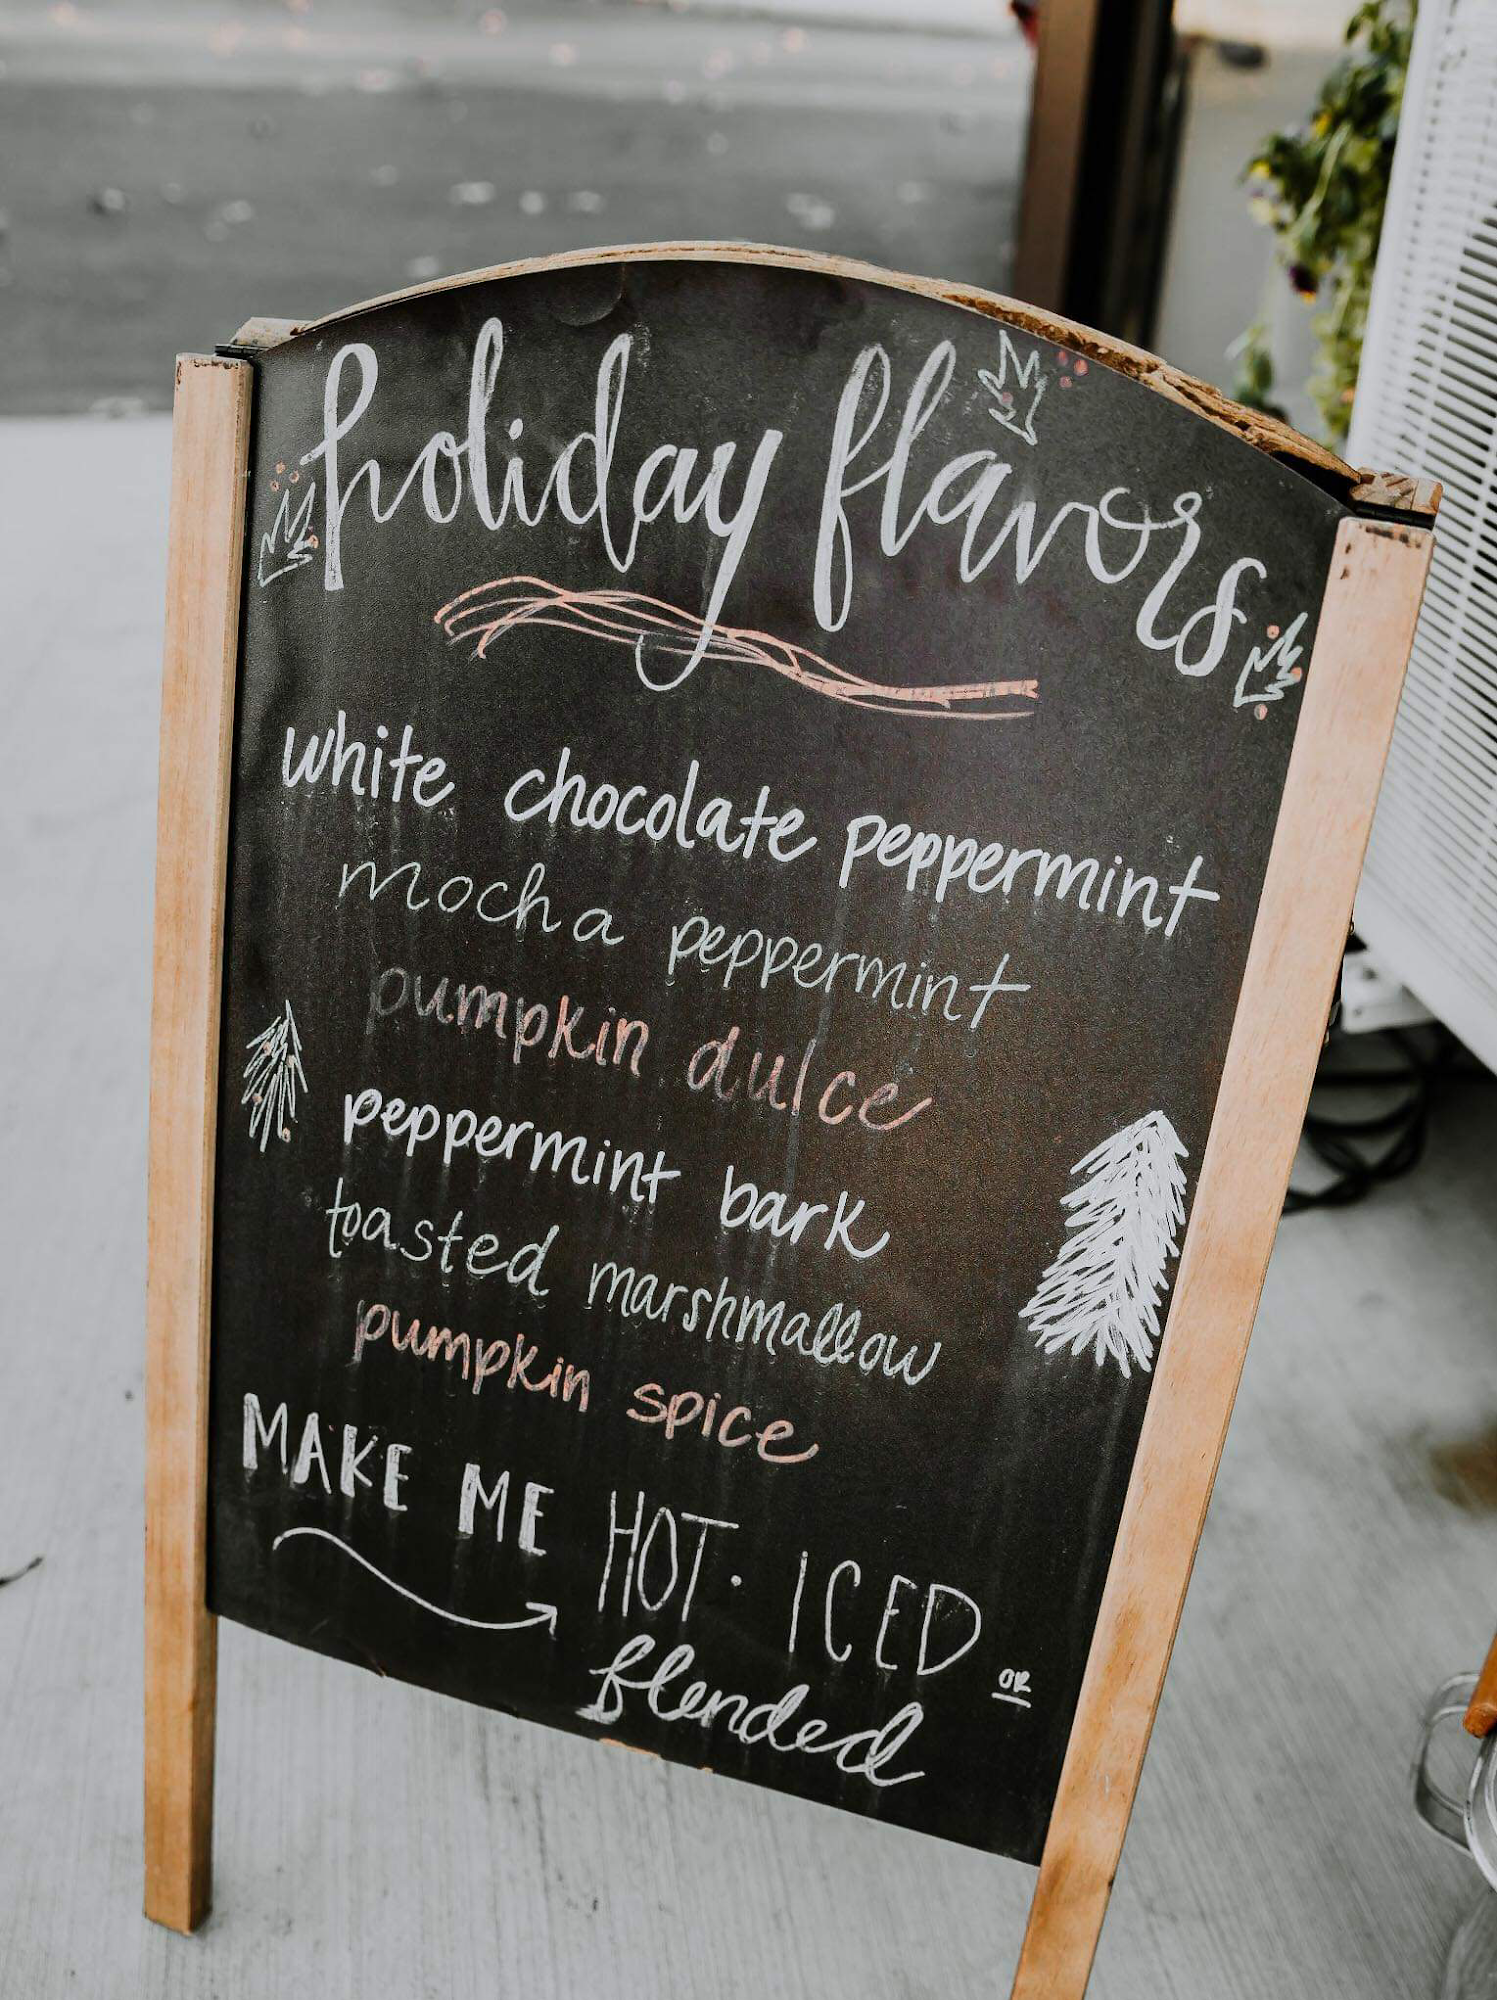 holiday flavors
white chocolate peppermint
mocha peppermint
pumpkin dulce
peppermint bark
toasted marshmallow
pumpkin spice
MAKE ME HOT · ICED OR
blended